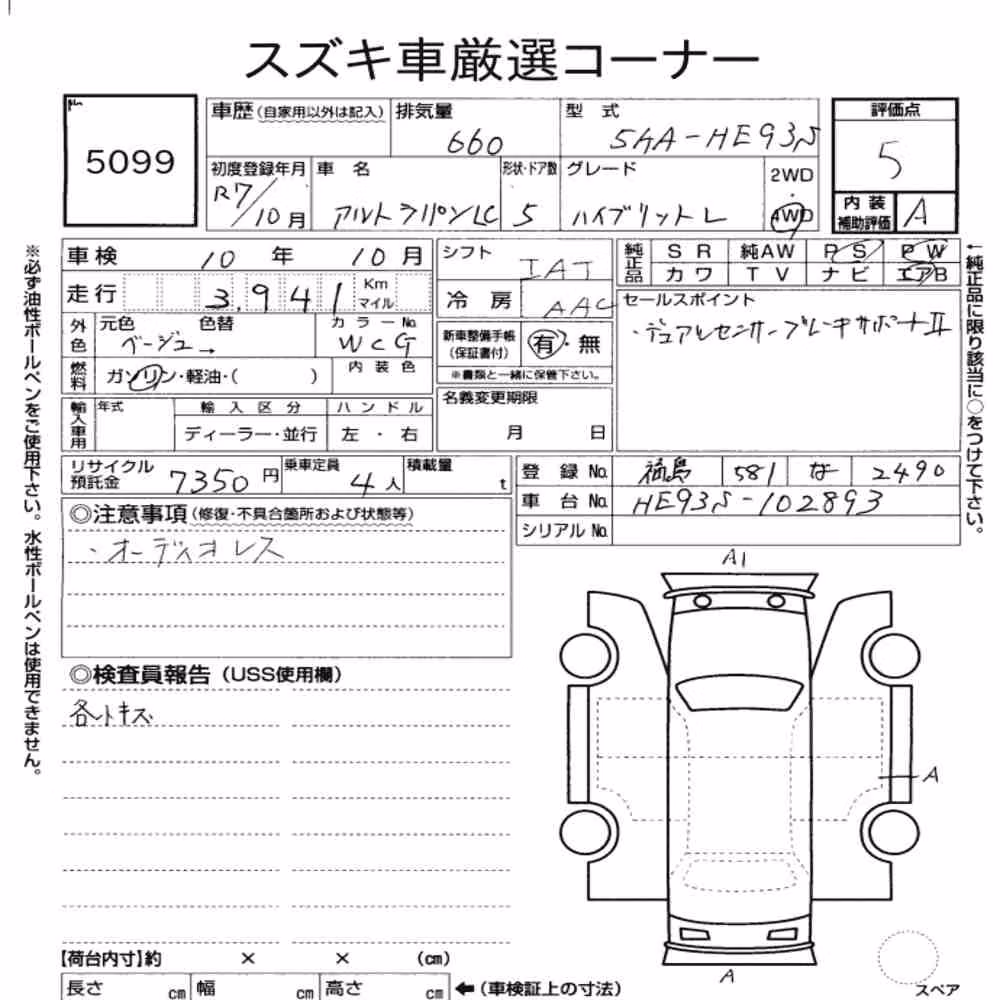 スズキ車厳選コーナー
5099
車歴(自家用以外は記入) 排気量 660 型式 5AA-HE93S
評価点 5
初度登録年月 R7/10月 車名 アルトラパンLC 形状・ドア数 5 グレード ハイブリットL 2WD・4WD
内装補助評価 A
車検 10年 10月
シフト IAT
純正品 SR 純AW PS PW
カワ TV ナビ エアB
走行 3,941 Km マイル
冷房 AAC
セールスポイント
・デュアルセンサーブレーキサポートⅡ
外色 元色 ベージュ→ 色替 カラーNo. WCG
新車整備手帳(保証書付) 有・無
※書類と一緒に保管下さい。
燃料 ガソリン・軽油・( ) 内装色
名義変更期限
月 日
輸入車用 年式 輸入区分 ハンドル
ディーラー・並行 左・右
リサイクル預託金 7350円 乗車定員 4人 積載量 t
登録No. 福島 581 な 2490
車台No. HE93S-102893
シリアルNo.
◎注意事項(修復・不具合箇所および状態等)
・オーディオレス
◎検査員報告(USS使用欄)
各トキズ
A1
A
A
スペア
【荷台内寸】約 × × (cm)
長さ cm 幅 cm 高さ cm ←(車検証上の寸法)
※必ず油性ボールペンをご使用下さい。水性ボールペンは使用できません。
←純正品に限り該当に○をつけて下さい。